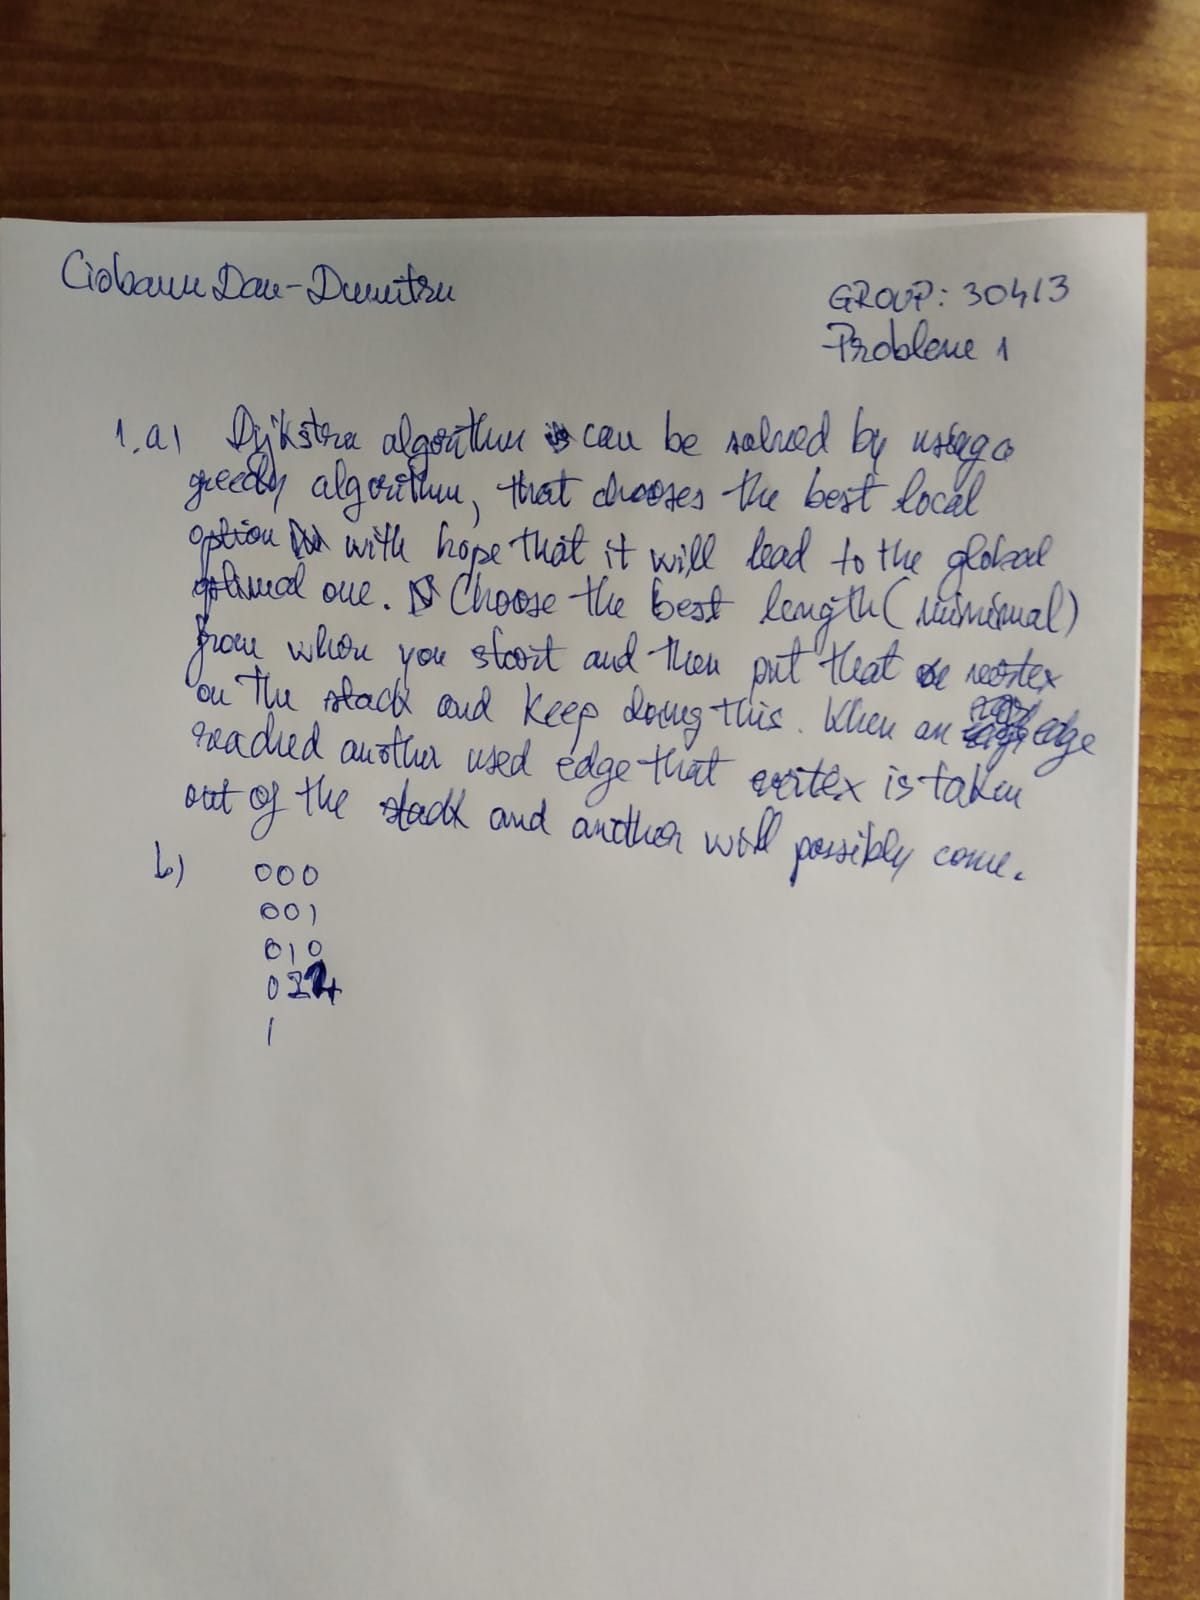 Ciobanu Dan-Dumitru
GROUP: 30413
Probleme 1
1.a) Dijkstra algorithm can be solved by using a
greedy algorithm, that chooses the best local
option with hope that it will lead to the global
optimal one. Choose the best length (minimal)
from when you start and then put that vertex
on the stack and keep doing this. When an edge
reached another used edge that vertex is taken
out of the stack and another will possibly come.
b) 000
001
010
1